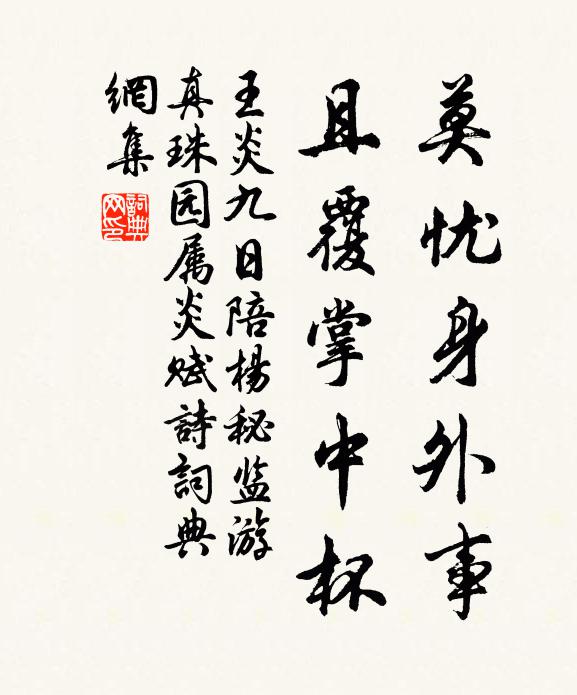 莫忧身外事
且覆掌中杯
王炎九日陪楊秘监游
真珠园属炎赋詩詞典
網集
詞典
网印